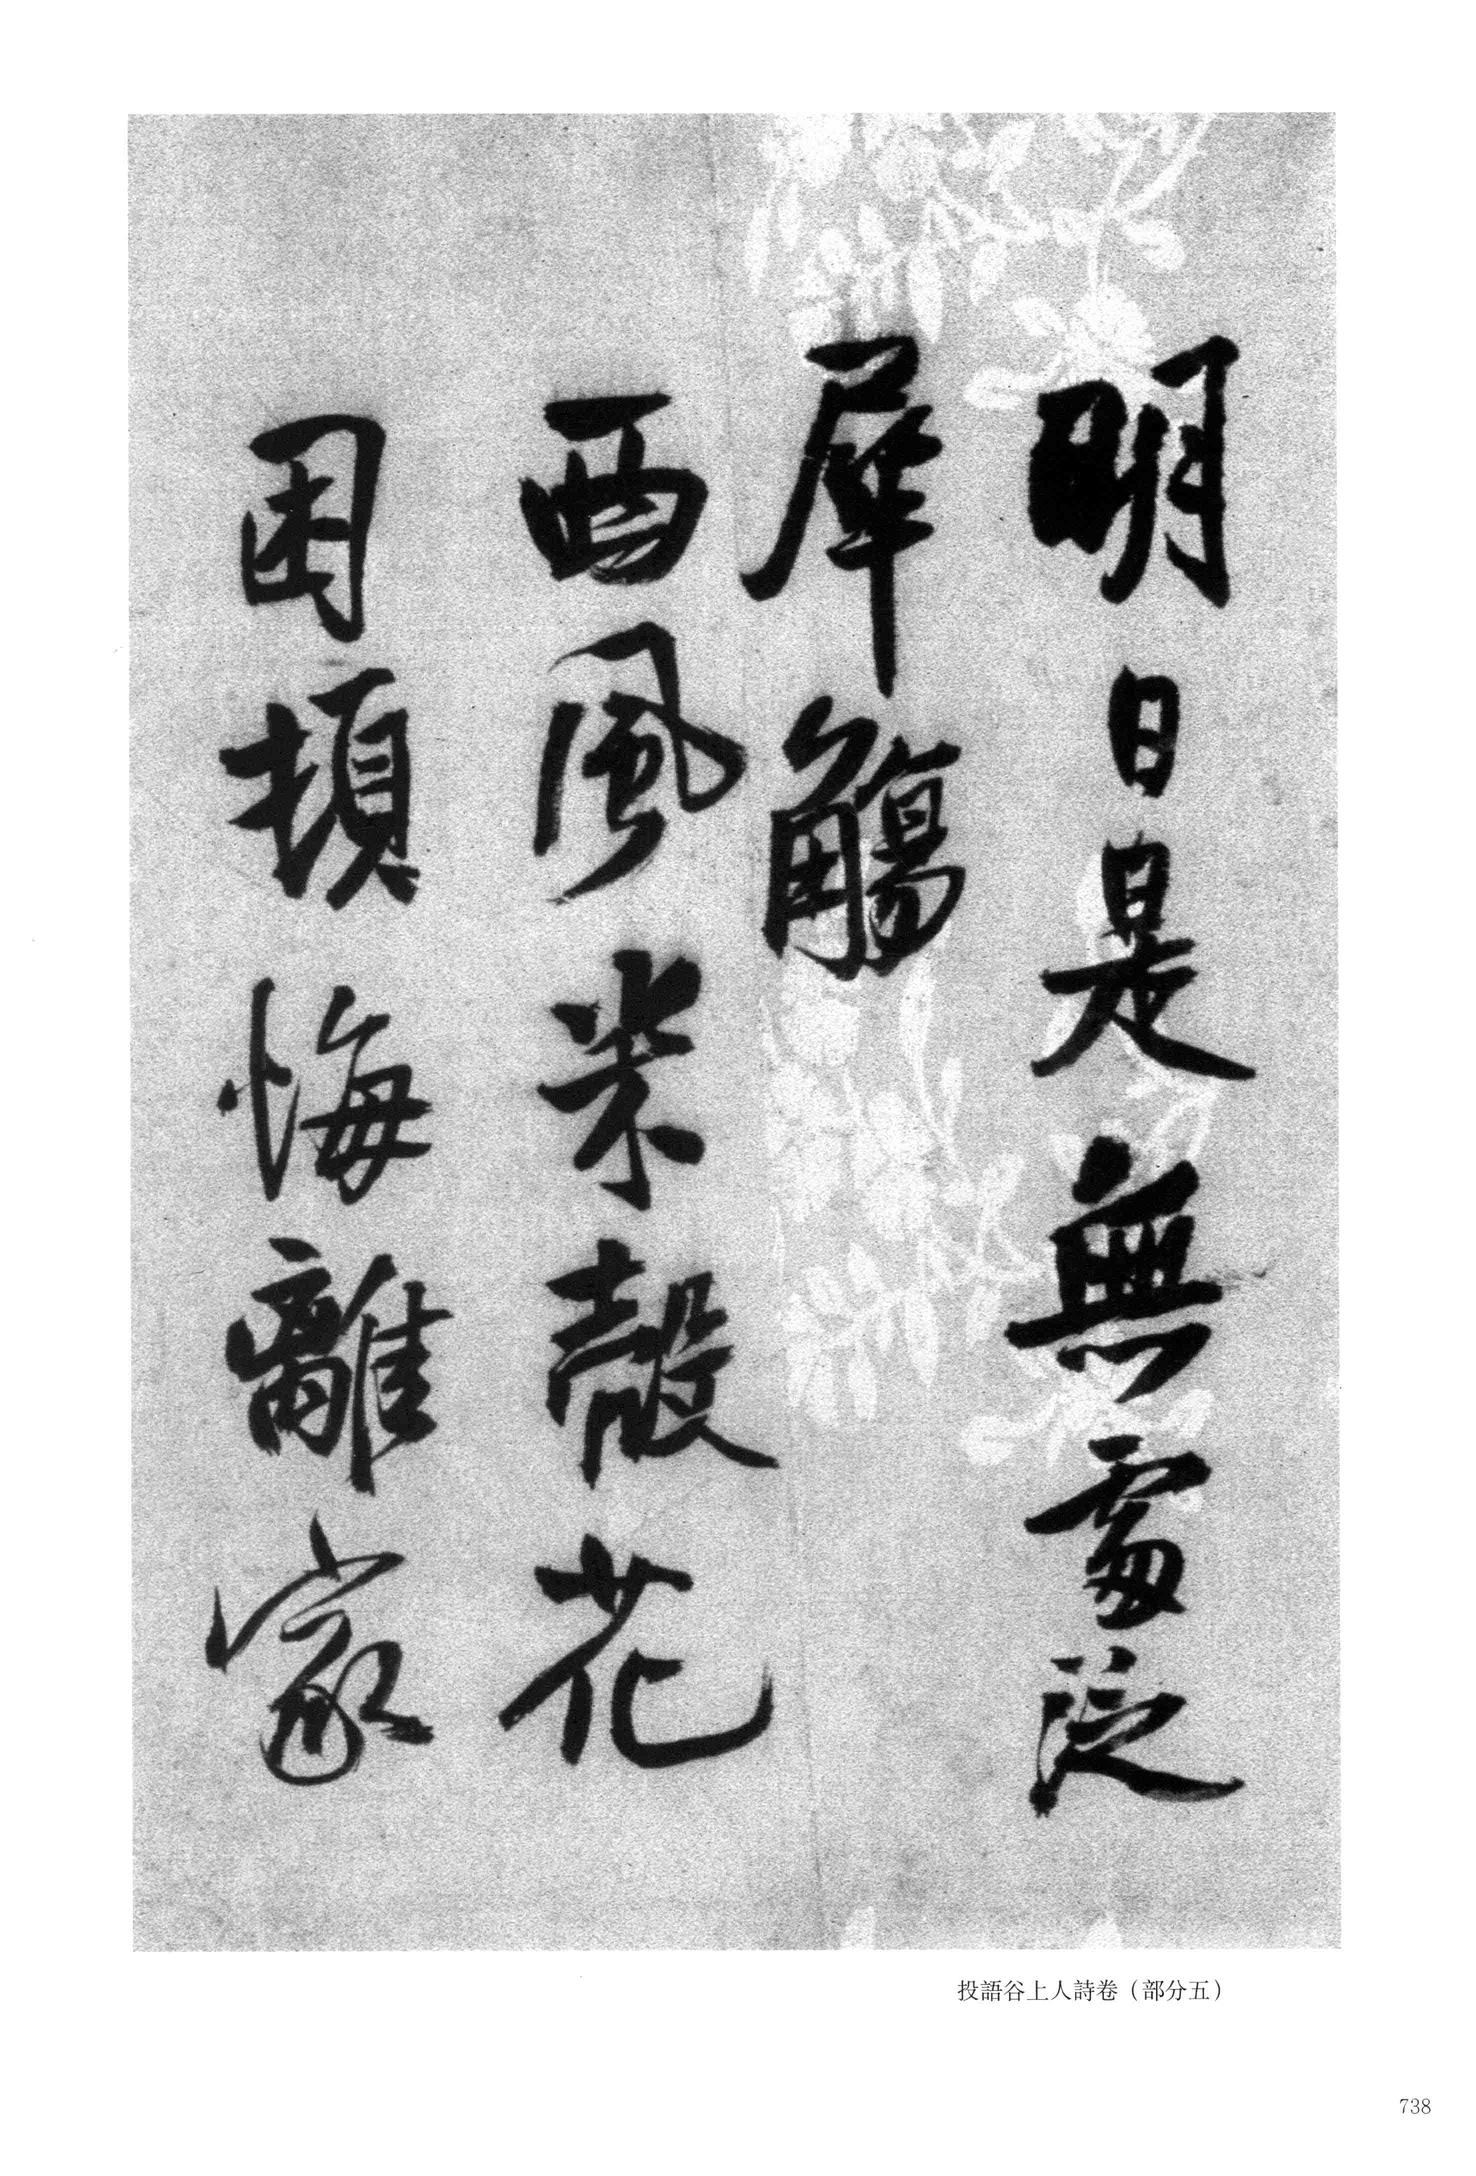 明日是無處泛
犀觴
西風米殼花
困頓悔離家
投語谷上人詩卷（部分五）
738